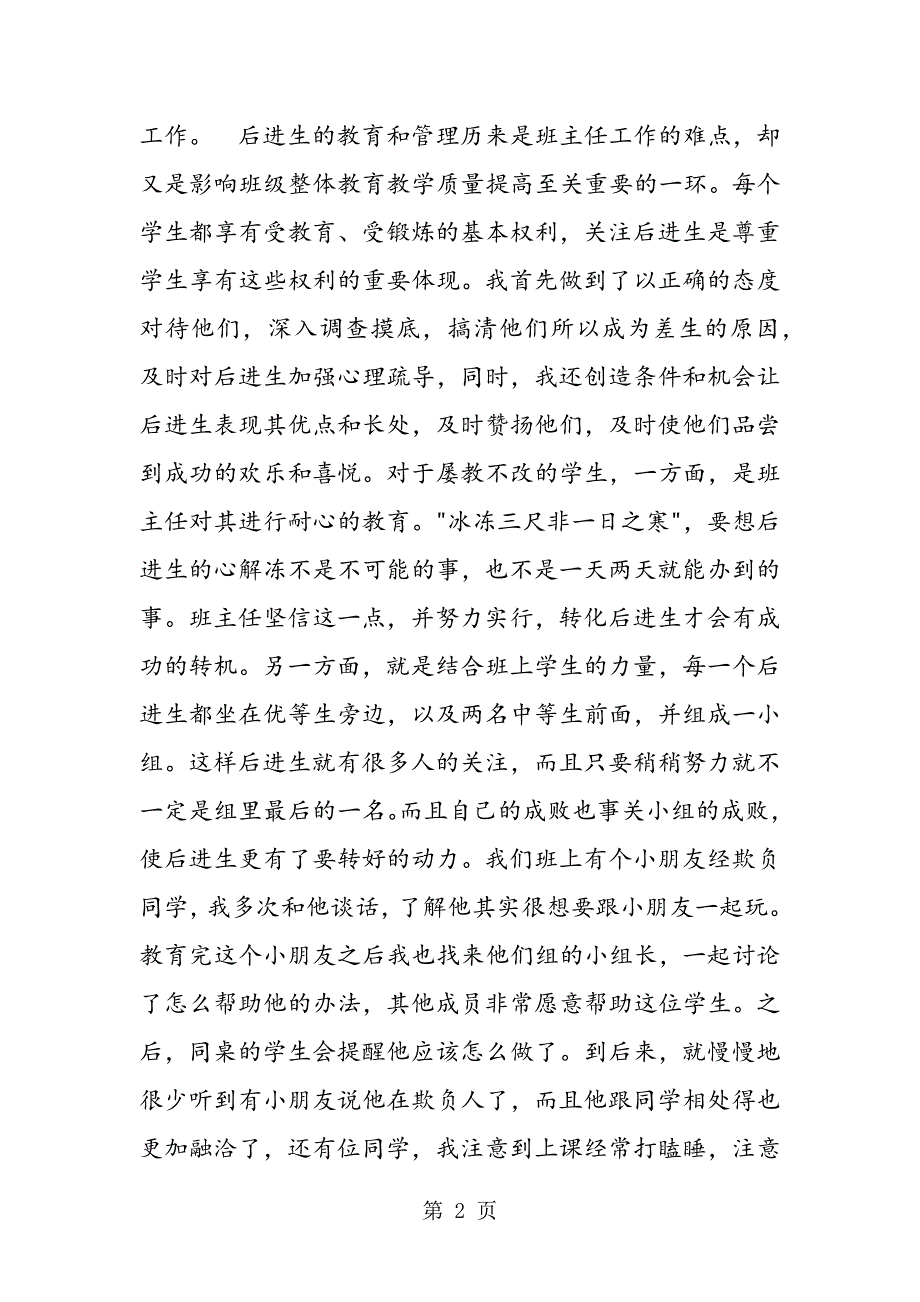 工作。　后进生的教育和管理历来是班主任工作的难点，却
又是影响班级整体教育教学质量提高至关重要的一环。每个
学生都享有受教育、受锻炼的基本权利，关注后进生是尊重
学生享有这些权利的重要体现。我首先做到了以正确的态度
对待他们，深入调查摸底，搞清他们所以成为差生的原因，
及时对后进生加强心理疏导，同时，我还创造条件和机会让
后进生表现其优点和长处，及时赞扬他们，及时使他们品尝
到成功的欢乐和喜悦。对于屡教不改的学生，一方面，是班
主任对其进行耐心的教育。"冰冻三尺非一日之寒"，要想后
进生的心解冻不是不可能的事，也不是一天两天就能办到的
事。班主任坚信这一点，并努力实行，转化后进生才会有成
功的转机。另一方面，就是结合班上学生的力量，每一个后
进生都坐在优等生旁边，以及两名中等生前面，并组成一小
组。这样后进生就有很多人的关注，而且只要稍稍努力就不
一定是组里最后的一名。而且自己的成败也事关小组的成败，
使后进生更有了要转好的动力。我们班上有个小朋友经欺负
同学，我多次和他谈话，了解他其实很想要跟小朋友一起玩。
教育完这个小朋友之后我也找来他们组的小组长，一起讨论
了怎么帮助他的办法，其他成员非常愿意帮助这位学生。之
后，同桌的学生会提醒他应该怎么做了。到后来，就慢慢地
很少听到有小朋友说他在欺负人了，而且他跟同学相处得也
更加融洽了，还有位同学，我注意到上课经常打瞌睡，注意
第 2 页